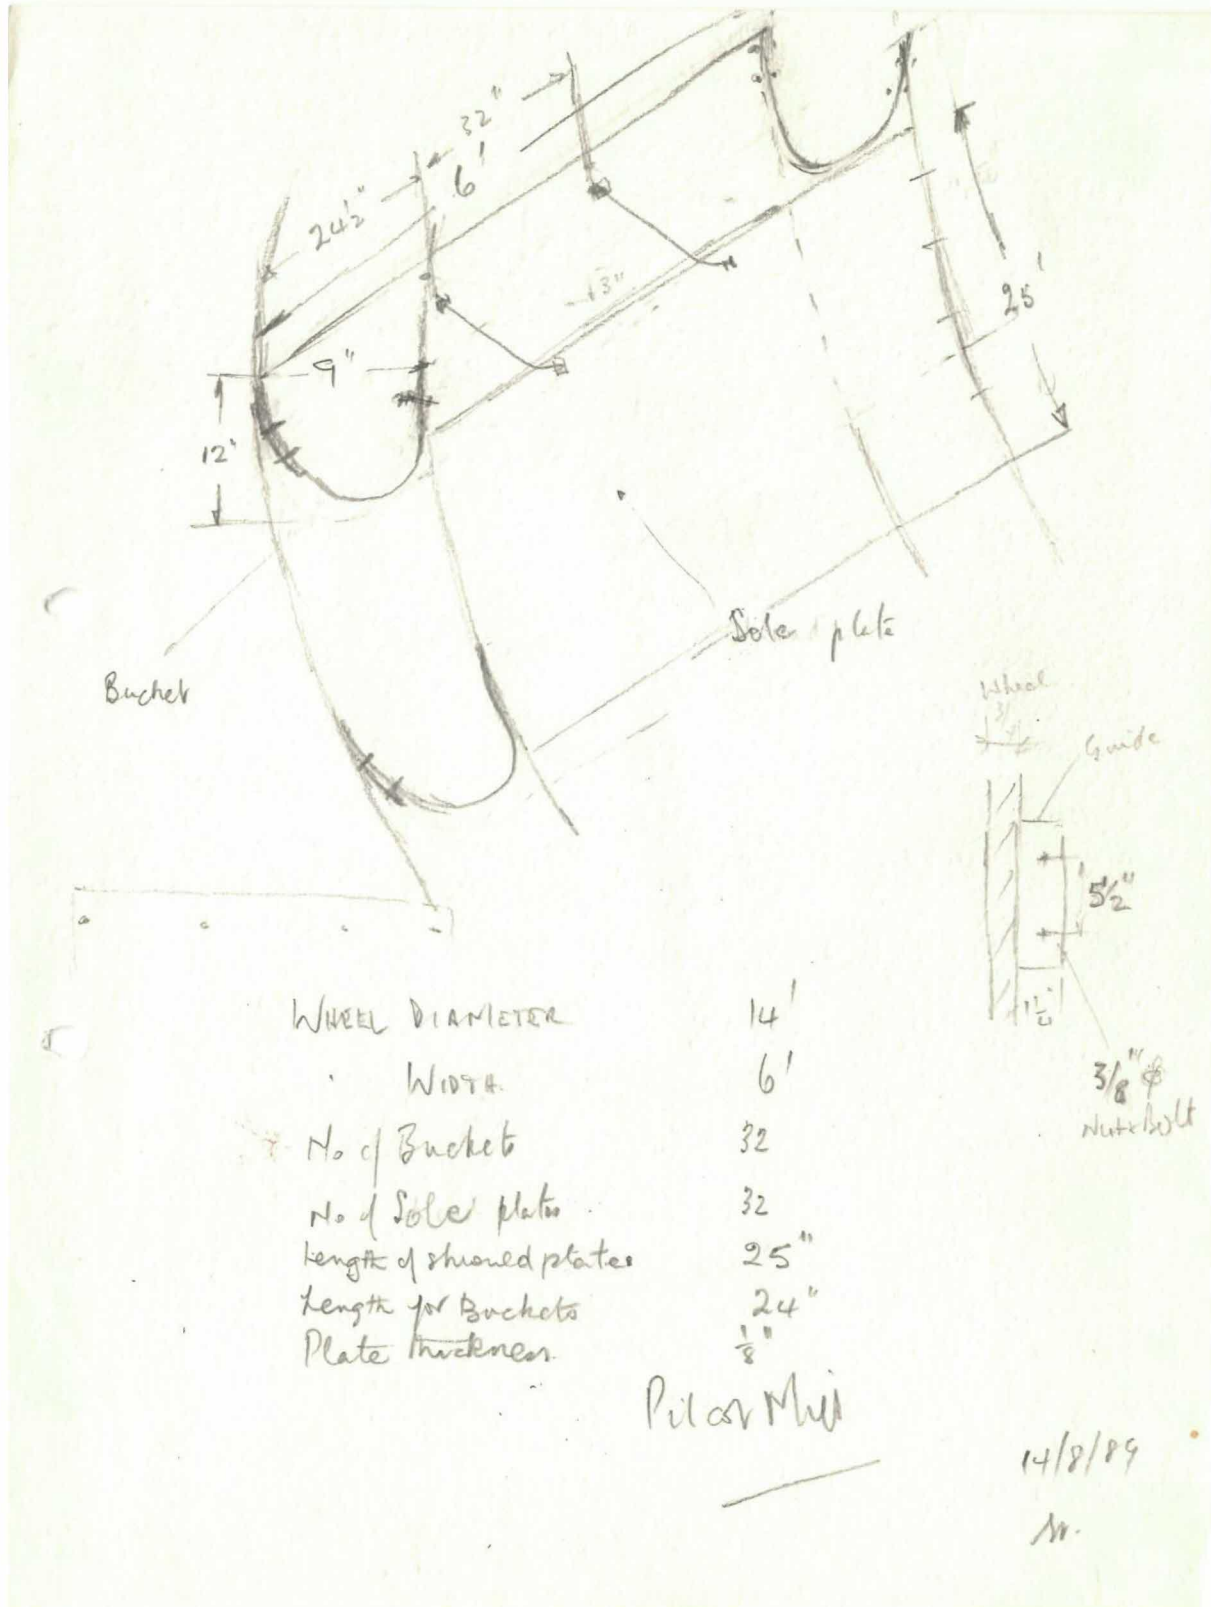 32"
6'
24½"
13"
25'
9"
12"
Sole plate
Bucket
Wheel
Guide
5½"
1¼"
3/8" ϕ
Nut & Bolt
WHEEL DIAMETER 14'
WIDTH 6'
No of Buckets 32
No of Sole plates 32
Length of shroud plates 25"
Length for Buckets 24"
Plate thickness ⅛"
Pilcot Mill
14/8/89